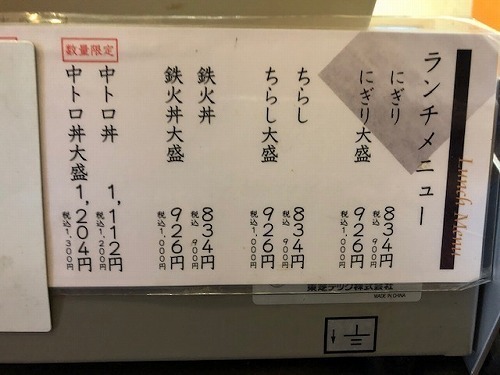 ランチメニュー
Lunch Menu
にぎり 834円
税込 900円
にぎり大盛 926円
税込1,000円
ちらし 834円
税込 900円
ちらし大盛 926円
税込1,000円
鉄火丼 834円
税込 900円
鉄火丼大盛 926円
税込1,000円
数量限定
中トロ丼 1,112円
税込1,200円
中トロ丼大盛 1,204円
税込1,300円
東芝テック株式会社
MADE IN CHINA